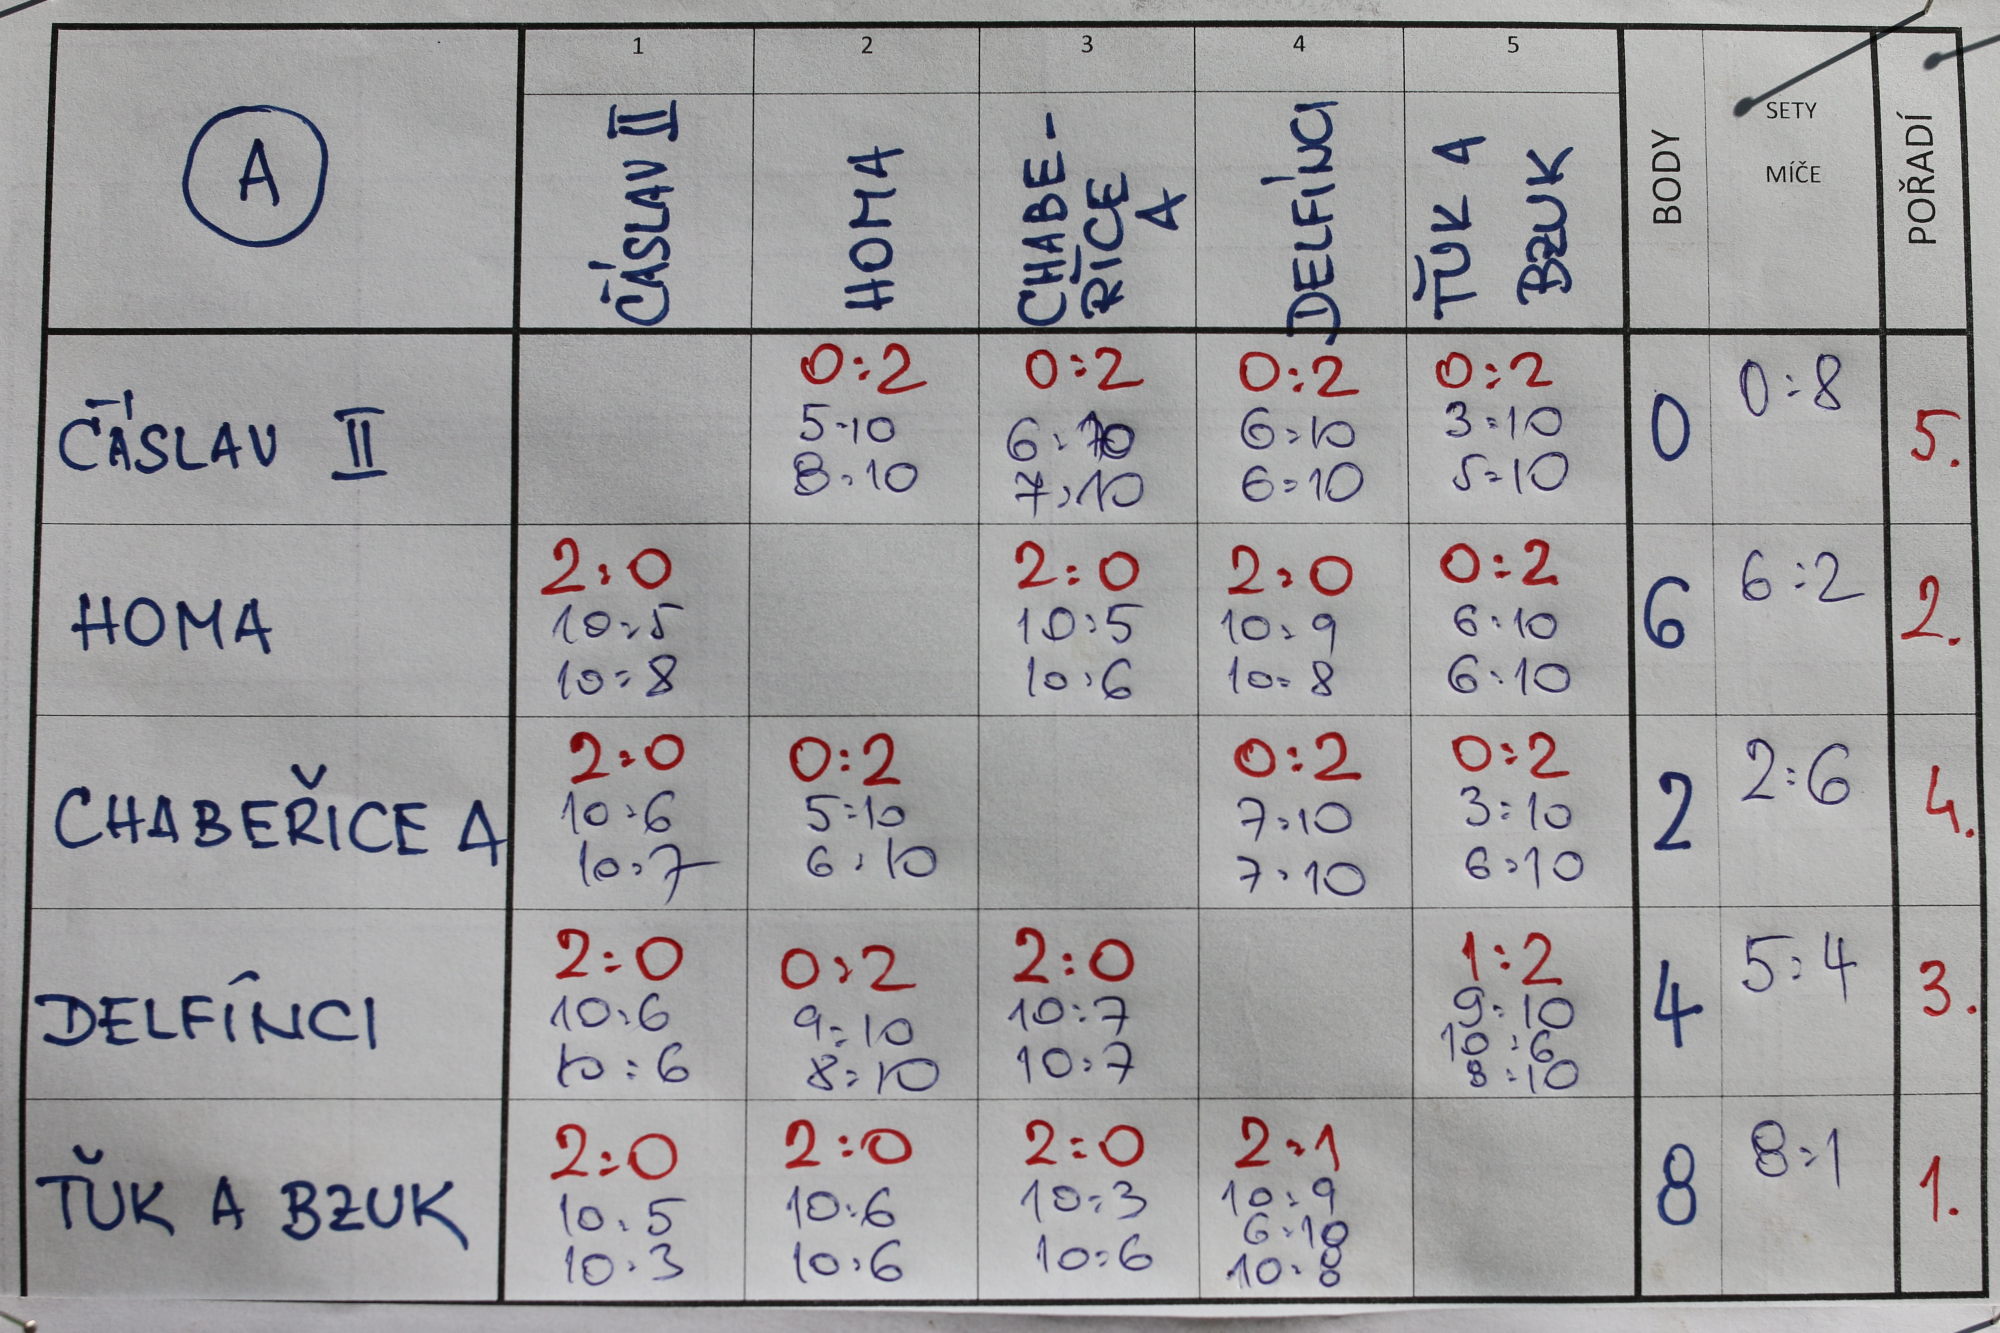 A
1 2 3 4 5
ČÁSLAV II
HOMA
CHABE-
ŘICE
A
DELFÍNCI
ŤUK A
BZUK
BODY
SETY
MÍČE
POŘADÍ
ČÁSLAV II 0:2 0:2 0:2 0:2 0 0:8 5.
5:10 6:10 6:10 3:10
8:10 7:10 6:10 5:10
HOMA 2:0 2:0 2:0 0:2 6 6:2 2.
10:5 10:5 10:9 6:10
10:8 10:6 10:8 6:10
CHABEŘICE A 2:0 0:2 0:2 0:2 2 2:6 4.
10:6 5:10 7:10 3:10
10:7 6:10 7:10 6:10
DELFÍNCI 2:0 0:2 2:0 1:2 4 5:4 3.
10:6 9:10 10:7 9:10
10:6 8:10 10:7 10:6
8:10
ŤUK A BZUK 2:0 2:0 2:0 2:1 8 8:1 1.
10:5 10:6 10:3 10:9
10:3 10:6 10:6 6:10
10:8